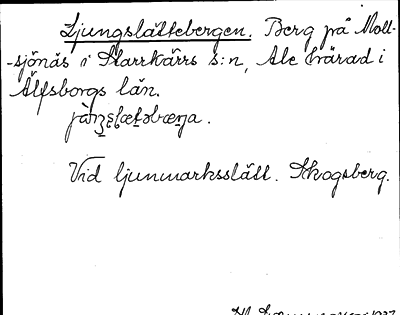 Ljungslättebergen. Berg på Moll-
-sjönäs i Starrkärrs s:n, Ale härad i
Älfsborgs län.
Vid ljunmarksslätt. Skogsberg.